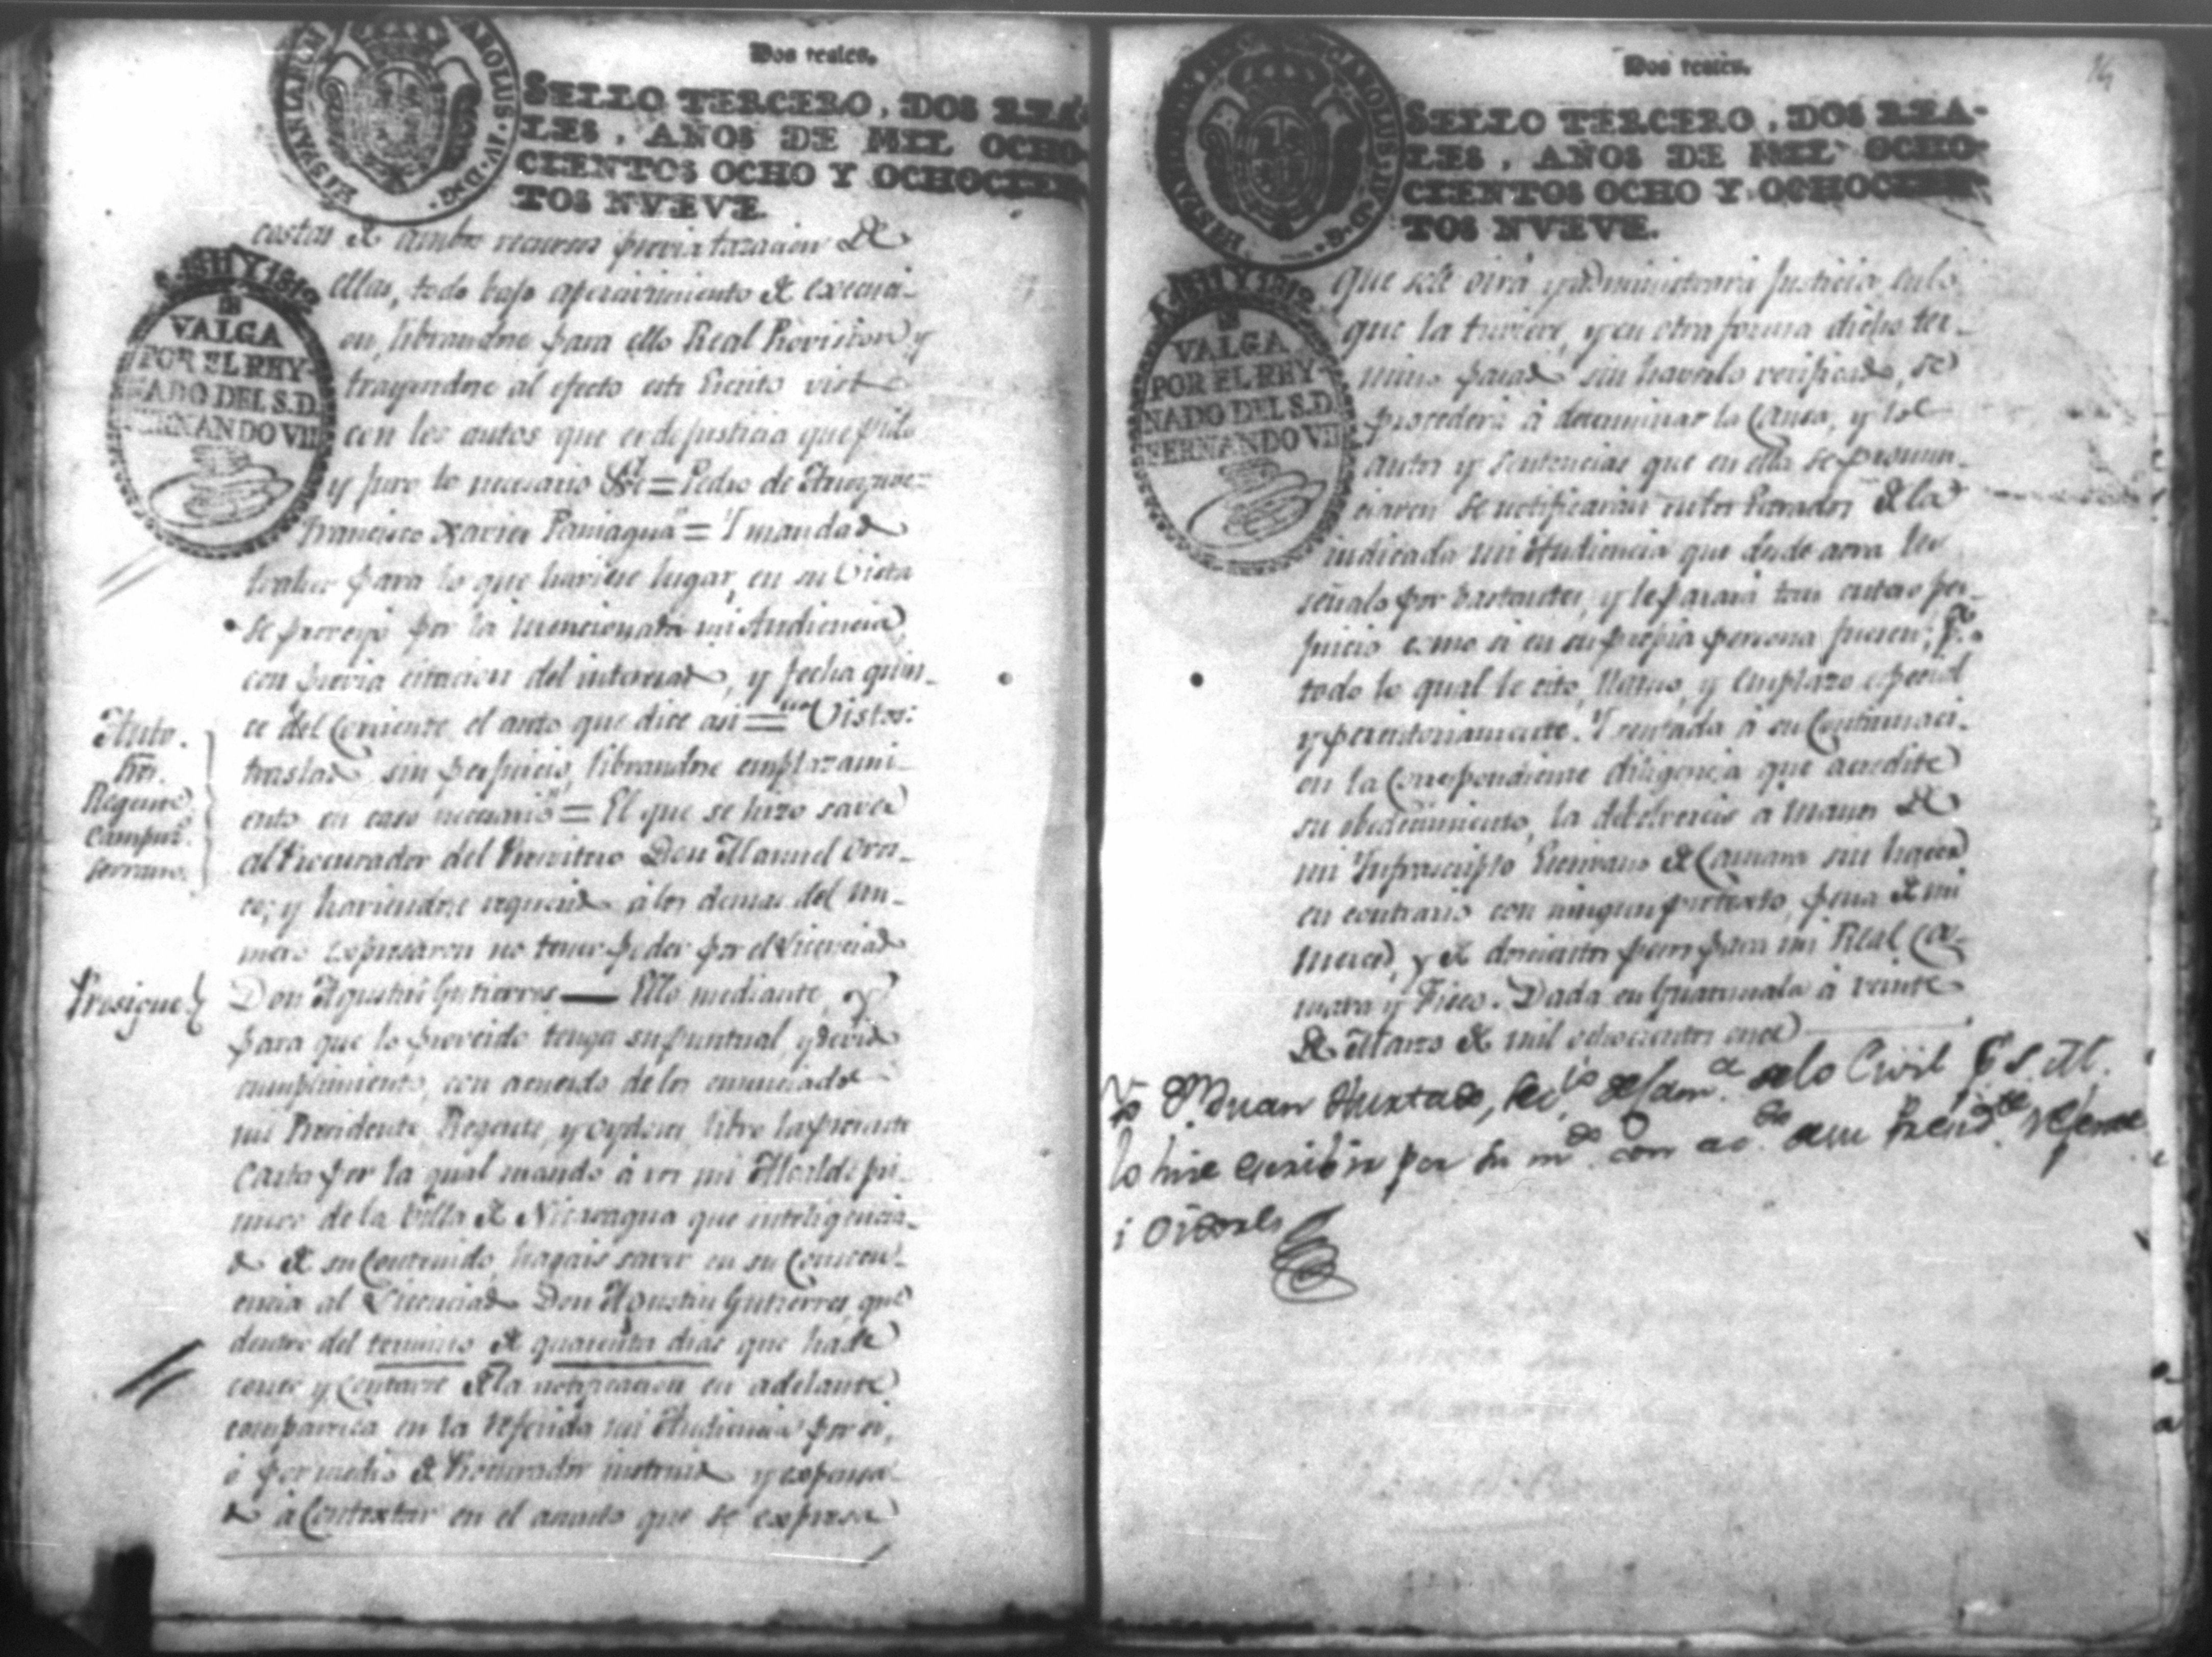 Dos reales.
SELLO TERCERO, DOS REA-
LES, AÑOS DE MIL OCHO-
CIENTOS OCHO Y OCHOCIEN
TOS NVEVE.
HISPANIARUM
CAROLUS·IV·D·G·
A. 1811 Y 1812
VALGA
POR EL REY-
NADO DEL S.D.
FERNANDO VII
costas de ambos recursos previa tazacion de
ellas, todo bajo apercivimiento de execuci-
on, librandose para ello Real Provision y
trayendose al efecto este Escrito visto
con los autos que es de justicia que pido
y juro lo necesario &c.ª = Pedro de
Francisco Xavier Paniagua = Y mandado
traher para lo que haviese lugar, en su Vista
se proveyó por la mencionada mi Audiencia
con previa citacion del interesado, y fecha quin-
ce del Corriente el auto que dice asi = Vistos:
traslado sin perjuicio, librandose emplazami-
ento en caso necesario = El que se hizo saver
al Procurador del Presvitero Don Manuel
y haviendose requerido á los demas del Nu-
mero expresaron no tener poder por el Licenciado
Don Agustin Gutierres — Ello mediante, y
para que lo proveido tenga su puntual, y devido
cumplimiento, con acuerdo de los enunciados
mi Presidente, Regente, y Oydores, libro la presente
Carta por la qual mando á vos mi Alcalde pri-
mero de la Villa de Nicaragua que inteligencia-
do de su Contenido, hagais saver en su Concur-
encia al Licenciado Don Agustin Gutierres, que
dentro del termino de quarenta dias que ha de
correr y Contarse de la notificacion en adelante
comparesca en la referida mi Audiencia por si,
ó por medio de Procurador instruido y expensa-
do á Contextar en el asunto que se expresa
Auto.
Sres.
Regente
Campus.
Serrano.
Prosigue
Dos reales.
SELLO TERCERO, DOS REA-
LES, AÑOS DE MIL OCHO-
CIENTOS OCHO Y OCHOCIEN
TOS NVEVE.
CAROLUS·IV·D·G·
A. 1811 Y 1812
VALGA
POR EL REY-
NADO DEL S.D.
FERNANDO VII
que se le oirá y administrará justicia en lo
que la tuviere, y en otra forma dicho ter-
mino pasado sin haverlo verificado, se
procederá á determinar la Causa, y los
autos y sentencias que en ella se pronun-
ciaren se notificarán en los Estrados de la
indicada mi Audiencia que desde aora les
señalo por bastantes, y le parará tan entero per-
juicio como si en su propia persona fuesen; p.ª
todo lo qual le cito, llamo, y emplazo especial
y perentoriamente. Y sentada á su Continuaci-
on la Correspondiente diligencia que acredite
su obedecimiento, la debolvereis á manos de
mi Infrascripto Escrivano de Camara sin hacer
en contrario con ningun pretexto, pena de mi
merced, y de docientos pesos para mi Real Ca-
mara y Fisco. Dada en Guatemala á veinte
de Marzo de mil ochocientos once
Yo Dn. Juan Hurtado, de lo Civil
lo hice escribir por su m.do con ac.do de su Presid.te Regente
i Oidores